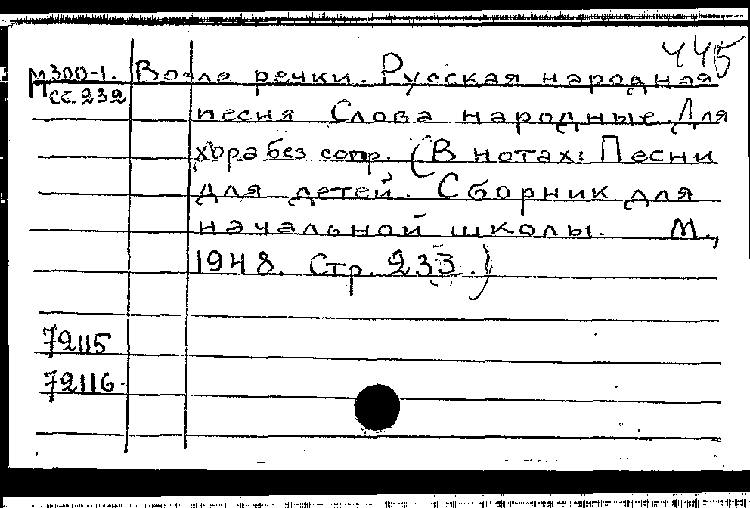 445
М300-1. Возле речки. Русская народная
сс. 232
песня Слова народные. Для
хора без сопр. (В нотах: Песни
для детей. Сборник для
начальной школы. М.,
1948. Стр. 233.)
72115
72116